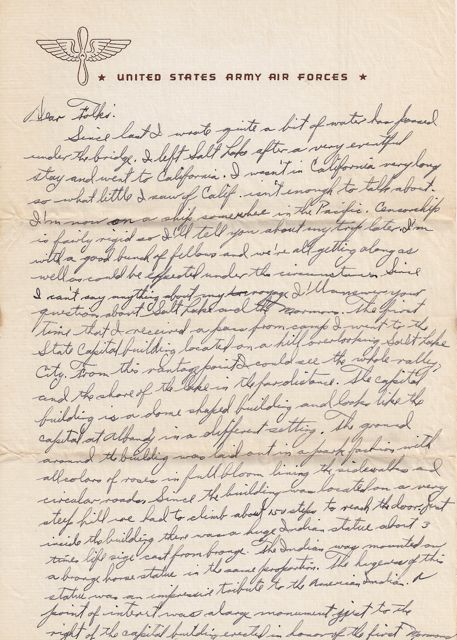 ★ UNITED STATES ARMY AIR FORCES ★
Dear Folks:
Since last I wrote quite a bit of water has passed
under the bridge. I left Salt Lake after a very eventful
stay and went to California. I wasn't in California very long
so what little I saw of Calif. isn't enough to talk about.
I'm now on a ship somewhere in the Pacific. Censorship
is fairly rigid so I'll tell you about my trip later. I'm
with a good bunch of fellows and we're all getting along as
well as could be expected under the circumstances. Since
I can't say anything about my voyage I'll answer your
question about Salt Lake and the Mormons. The first
time that I received a pass from camp I went to the
State Capital building located on a hill overlooking Salt Lake
City. From this vantage point I could see the whole valley,
and the shore of the lake in the far distance. The capital
building is a dome shaped building and looks like the
capital at Albany in a different setting. The ground
around the building was laid out in a park fashion with
all colors of roses in full bloom lining the sidewalks and
circular roads. Since the building was located on a very
steep hill we had to climb about steps to reach the door. Just
inside the building there was a huge Indian statue about 3
times life size cast from bronze. The Indian was mounted on
a bronze horse statue in the same proportion. The hugeness of this
statue was an impressive tribute to the American Indian. A
point of interest was a large monument just to the
right of the capital building erected in honor of the first Mormon